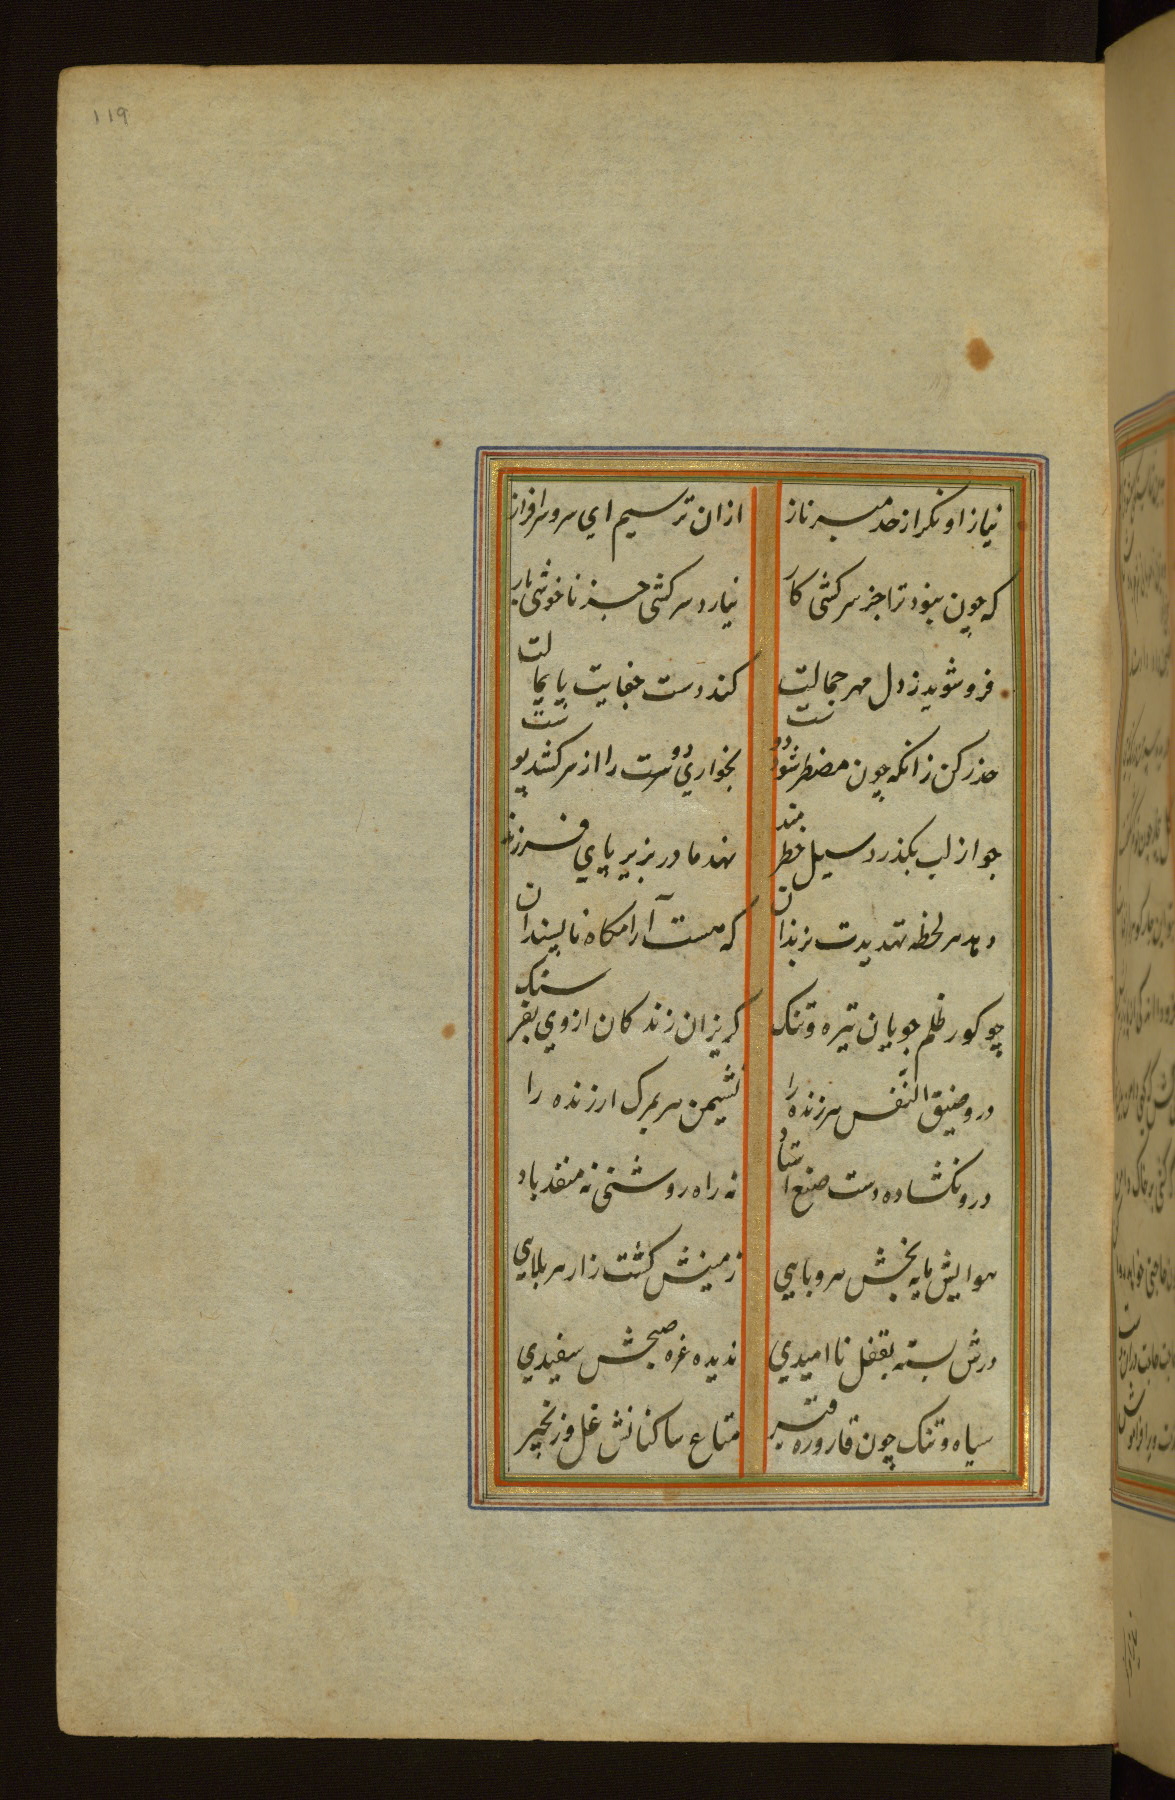 ۱۱۹
نیاز او نکر از حد مبر ناز ازان ترسیم ای سرو سرافراز
که چون نبود ترا جز سرکشی کار نیارد سرکشی جز ناخوشی بار
فرو شوید ز دل مهر جمالت کند دست جفایت پایمالت
حذر کن زانکه چون مضطر شود دوست بخواری دوست را از سر کشد پوست
چو از لب بکذرد سیل خطرمند نهد مادر بزیر پای فرزند
دهد هر لحظه تهدیدت بزندان که هست آرامکاه ناپسندان
چو کور ظلم جویان تیره و تنک کریزان زندکان از وی بفرسنک
درو ضیق النفس هر زنده را نشیمن هر بمرک ارزنده را
درو نکشاده دست صنع استاد نه راه روشنی نه منفذ باد
هوایش مایه بخش هر وبایی زمینش کشت زار هر بلایی
درش بسته بقفل ناامیدی ندیده غره صبحش سفیدی
سیاه و تنک چون قاروره قیر متاع ساکنانش غل و زنجیر